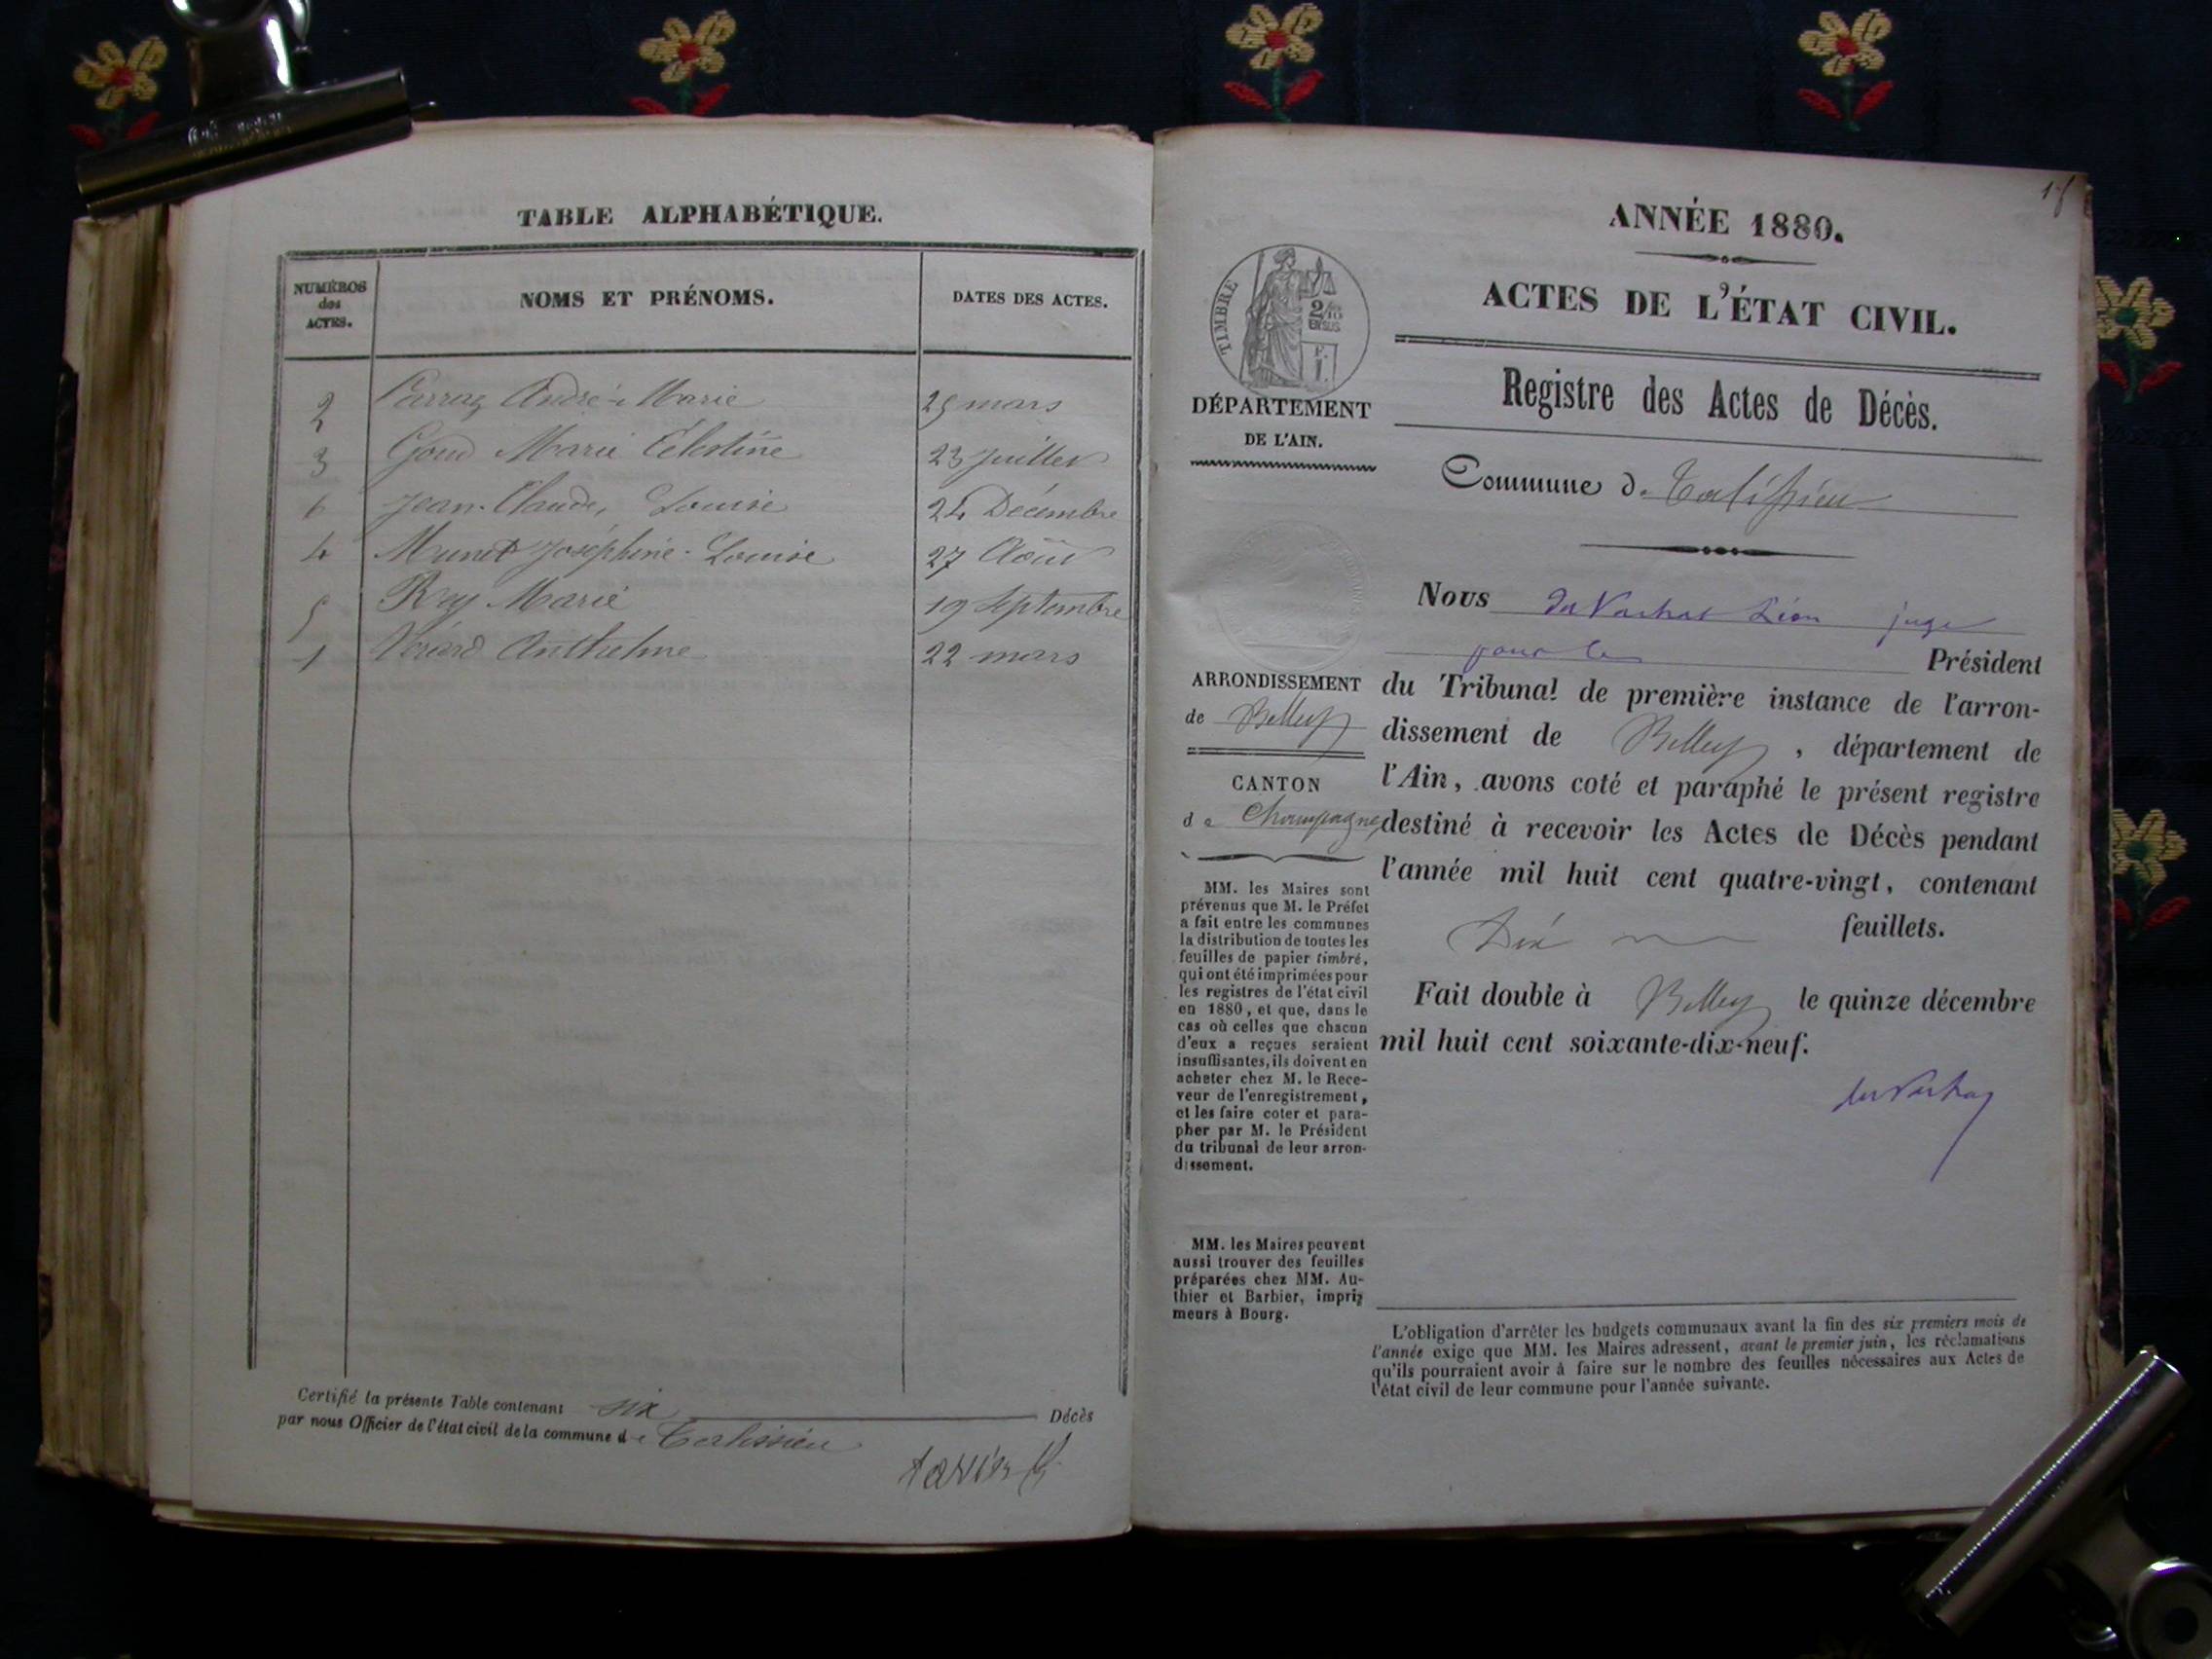 TABLE ALPHABÉTIQUE.
NUMÉROS
des
ACTES.
NOMS ET PRÉNOMS.
DATES DES ACTES.
2 André-Marie 25 mars
3 Goud Marie Célestine 23 Juillet
6 Jean-Claude, Louise 24 Décembre
4 Munet Joséphine-Louise 27 Août
5 Rey Marie 19 Septembre
1 Anthelme 22 mars
Certifié la présente Table contenant six Décès
par nous Officier de l'état civil de la commune de Talissieu
ANNÉE 1880.
ACTES DE L'ÉTAT CIVIL.
TIMBRE
2/10
EN SUS
DÉPARTEMENT
DE L'AIN.
Registre des Actes de Décès.
Commune de Talissieu
Nous Léon juge
pour le Président
du Tribunal de première instance de l'arron-
dissement de Belley, département de
l'Ain, avons coté et paraphé le présent registre
destiné à recevoir les Actes de Décès pendant
l'année mil huit cent quatre-vingt, contenant
Dix feuillets.
Fait double à Belley le quinze décembre
mil huit cent soixante-dix-neuf.
ARRONDISSEMENT
de Belley
CANTON
de Champagne
MM. les Maires sont
prévenus que M. le Préfet
a fait entre les communes
la distribution de toutes les
feuilles de papier timbré,
qui ont été imprimées pour
les registres de l'état civil
en 1880, et que, dans le
cas où celles que chacun
d'eux a reçues seraient
insuffisantes, ils doivent en
acheter chez M. le Rece-
veur de l'enregistrement,
et les faire coter et para-
pher par M. le Président
du tribunal de leur arron-
dissement.
MM. les Maires peuvent
aussi trouver des feuilles
préparées chez MM. Au-
thier et Barbier, impri-
meurs à Bourg.
L'obligation d'arrêter les budgets communaux avant la fin des six premiers mois de
l'année exige que MM. les Maires adressent, avant le premier juin, les réclamations
qu'ils pourraient avoir à faire sur le nombre des feuilles nécessaires aux Actes de
l'état civil de leur commune pour l'année suivante.